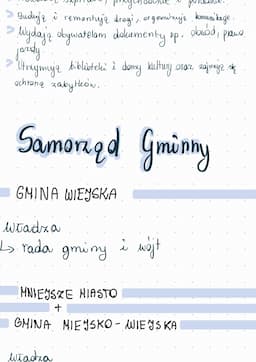 > Budują i remontują drogi, organizują komunikację.
> Wydają obywatelom dokumenty np. dowód, prawo
jazdy
> Utrzymują biblioteki i domy kultury oraz zajmują się
ochroną zabytków.
Samorząd Gminny
GMINA WIEJSKA
władza
↳ rada gminy i wójt
MNIEJSZE MIASTO
+
GMINA MIEJSKO-WIEJSKA
władza